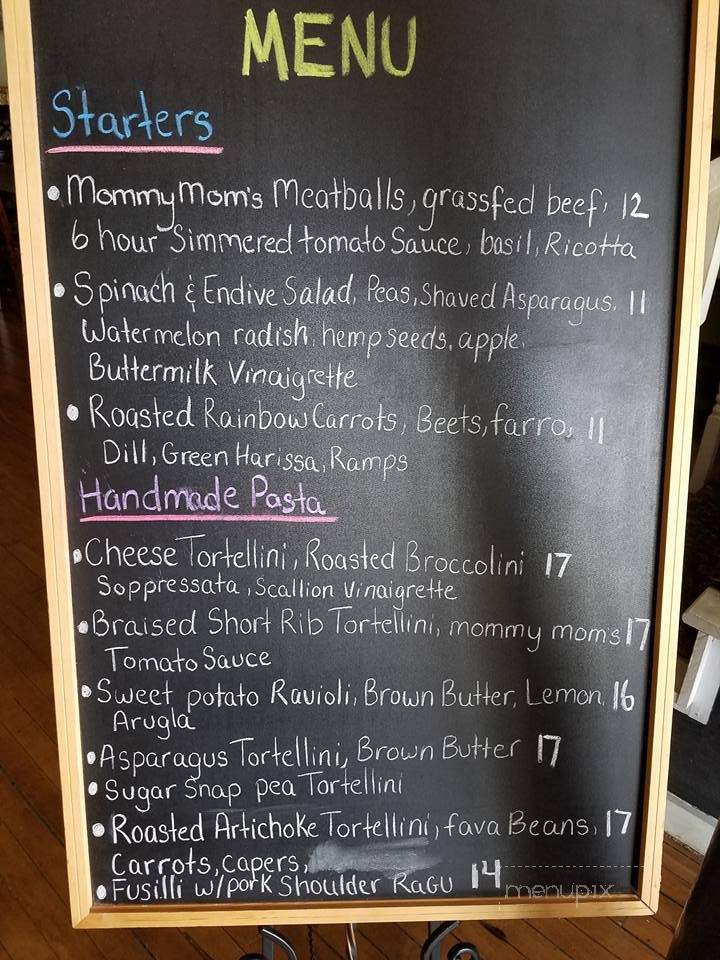 MENU
Starters
• Mommy Mom's Meatballs, grassfed beef, 12
6 hour Simmered tomato Sauce, basil, Ricotta
• Spinach & Endive Salad, Peas, Shaved Asparagus, 11
Watermelon radish, hemp seeds, apple,
Buttermilk Vinaigrette
• Roasted Rainbow Carrots, Beets, farro, 11
Dill, Green Harissa, Ramps
Handmade Pasta
• Cheese Tortellini, Roasted Broccolini 17
Soppressata, Scallion Vinaigrette
• Braised Short Rib Tortellini, mommy mom's 17
Tomato Sauce
• Sweet potato Ravioli, Brown Butter, Lemon, 16
Arugla
• Asparagus Tortellini, Brown Butter 17
• Sugar Snap pea Tortellini
• Roasted Artichoke Tortellini, fava Beans, 17
Carrots, capers,
• Fusilli w/pork Shoulder Ragu 14
menupix